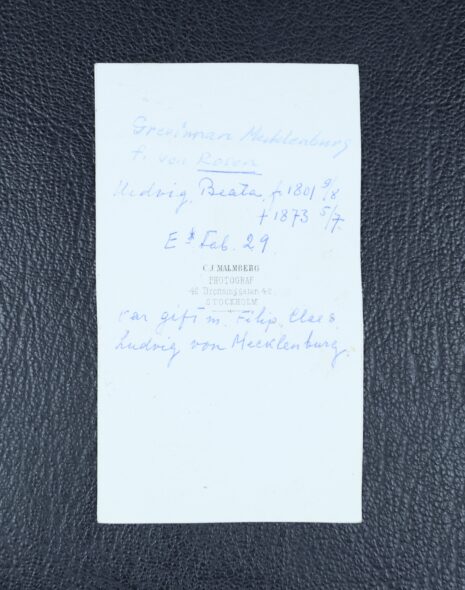 Grevinnan Mecklenburg
f. von Rosen
Hedvig Beata f 1801 9/8
+ 1873 5/7.
Ex Tab. 29.
C J MALMBERG
PHOTOGRAF
42 Drottninggatan 42
STOCKHOLM
var gift m. Filip, Claes,
Ludvig von Mecklenburg.